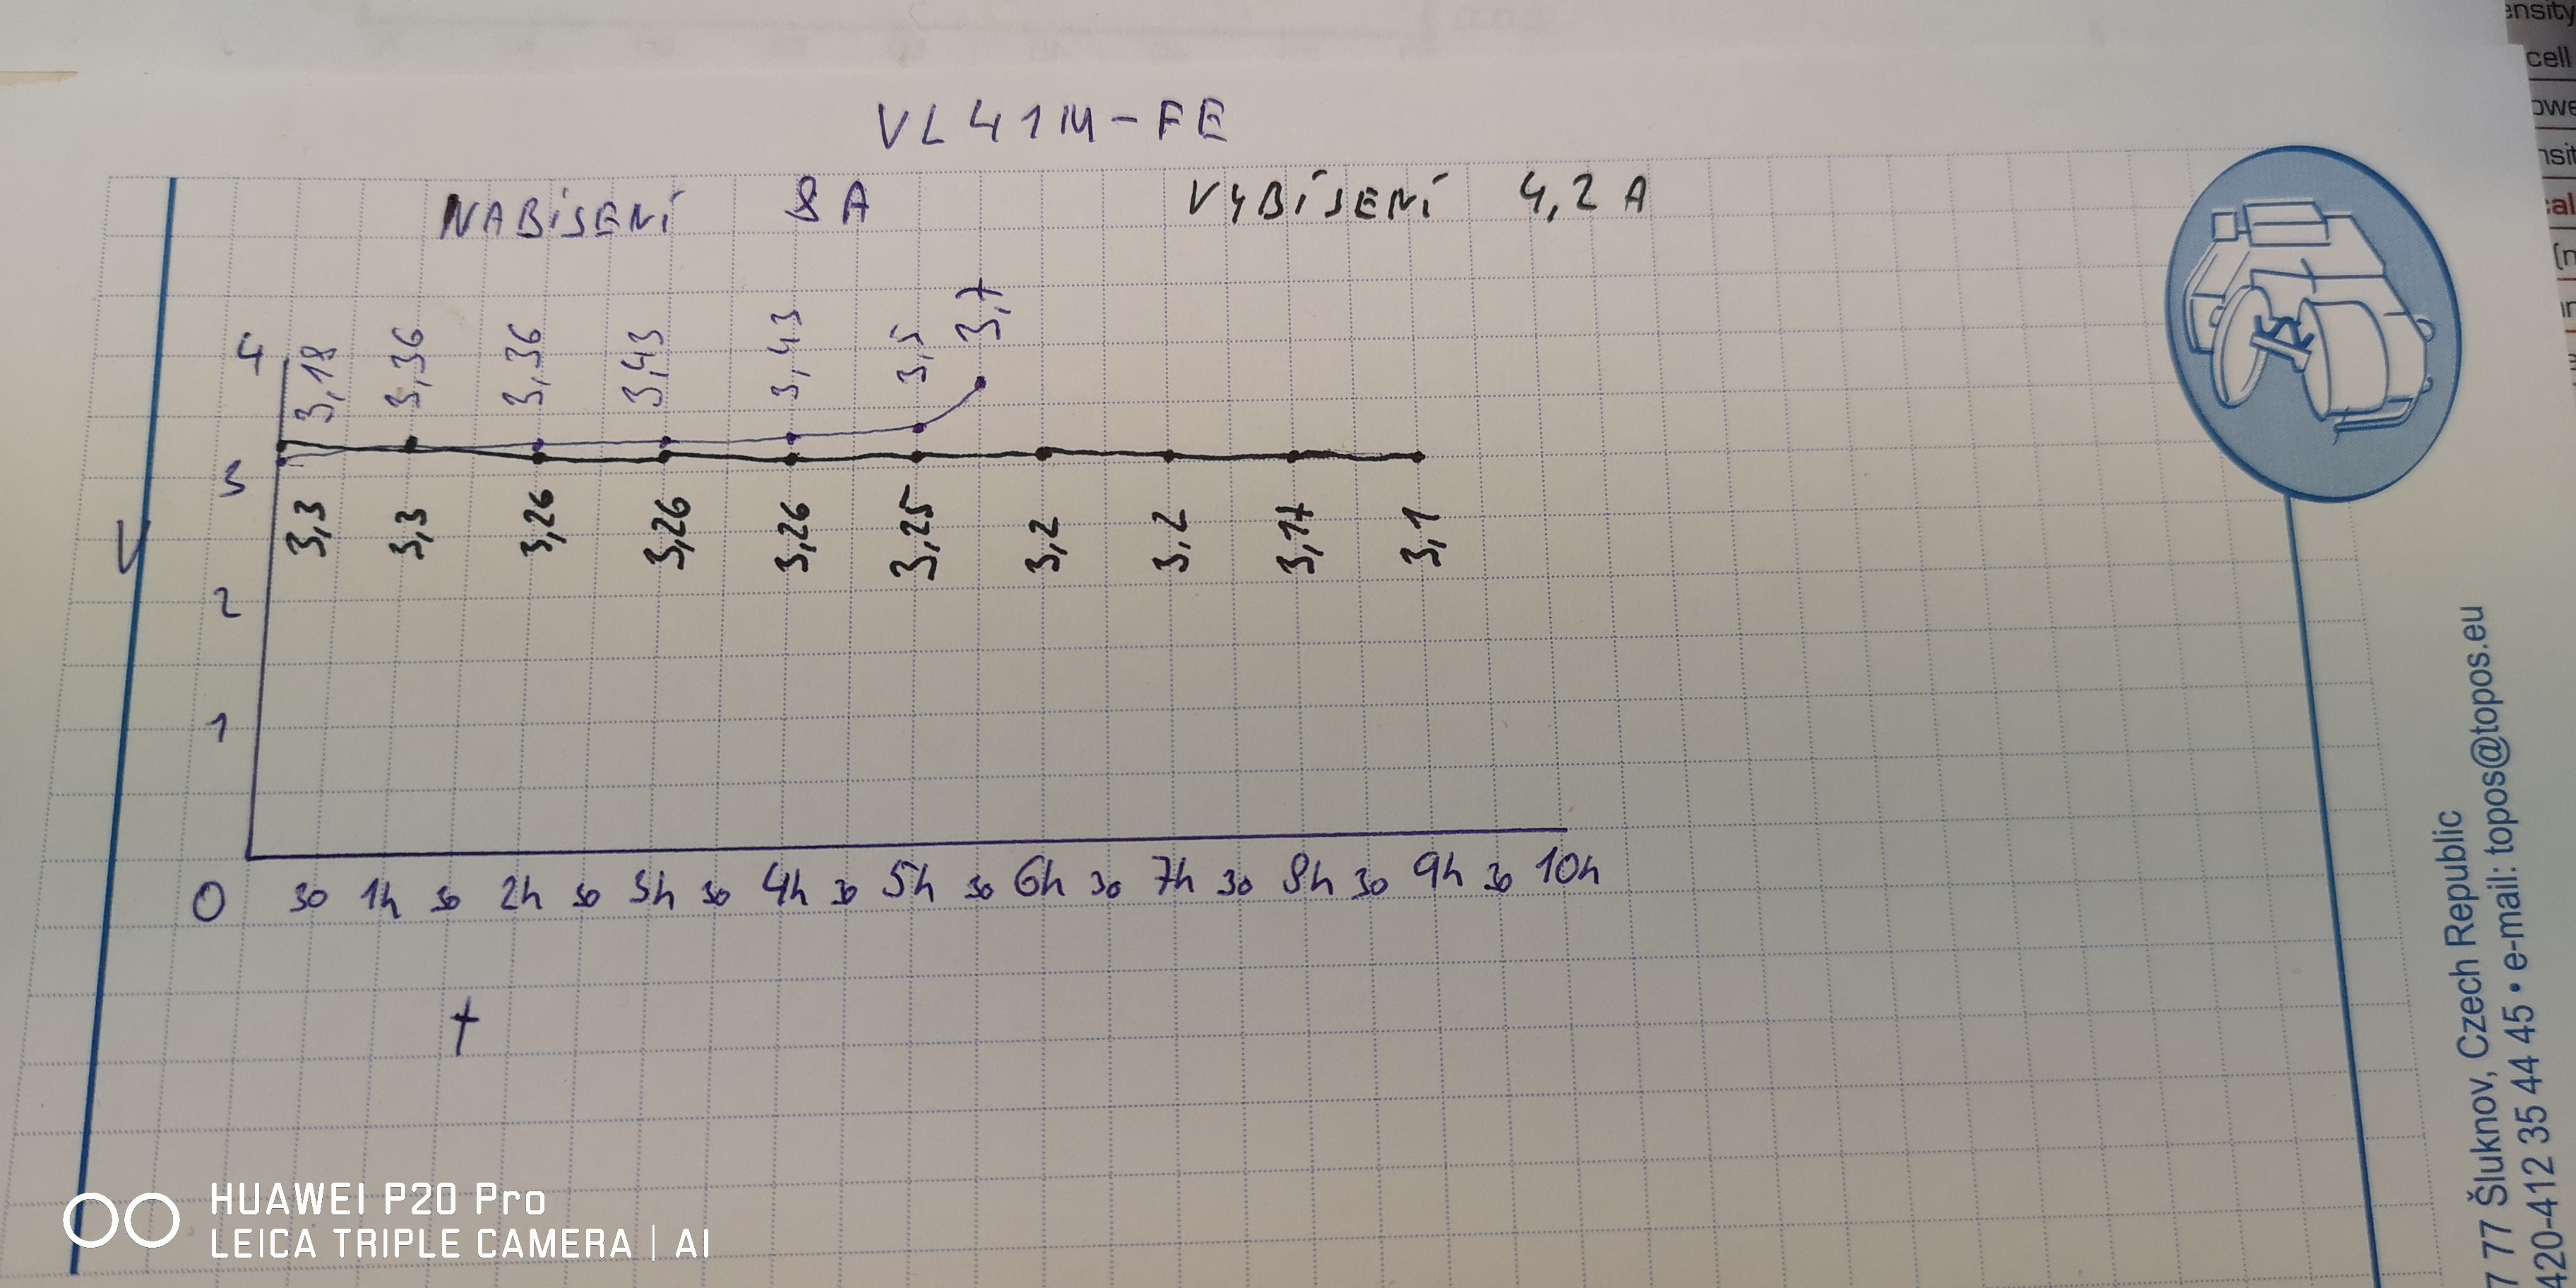 VL41M-FE
NABÍJENÍ 8A VYBÍJENÍ 4,2A
4
3,18 3,36 3,36 3,43 3,43 3,5 3,7
3
3,3 3,3 3,26 3,26 3,26 3,25 3,2 3,2 3,17 3,1
V
2
1
0 30 1h 30 2h 30 3h 30 4h 30 5h 30 6h 30 7h 30 8h 30 9h 30 10h
t
77 Šluknov, Czech Republic
420-412 35 44 45 • e-mail: topos@topos.eu
ensity
cell
HUAWEI P20 Pro
LEICA TRIPLE CAMERA | AI